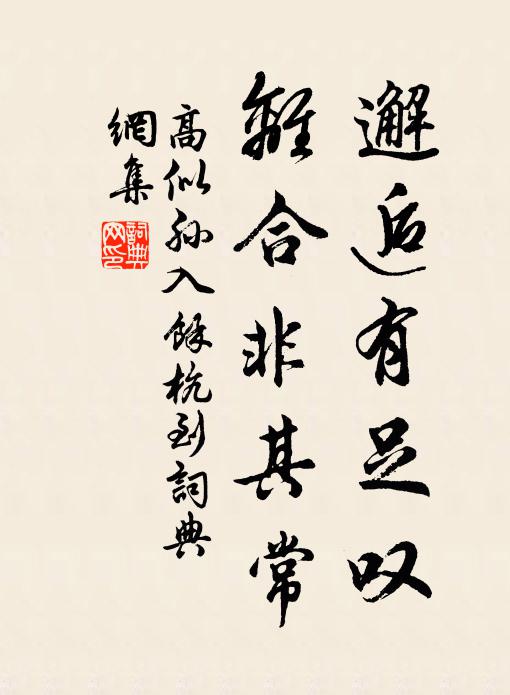 邂逅有足叹
離合非其常
高似孙入馀杭到詞典
網集
詞典网印